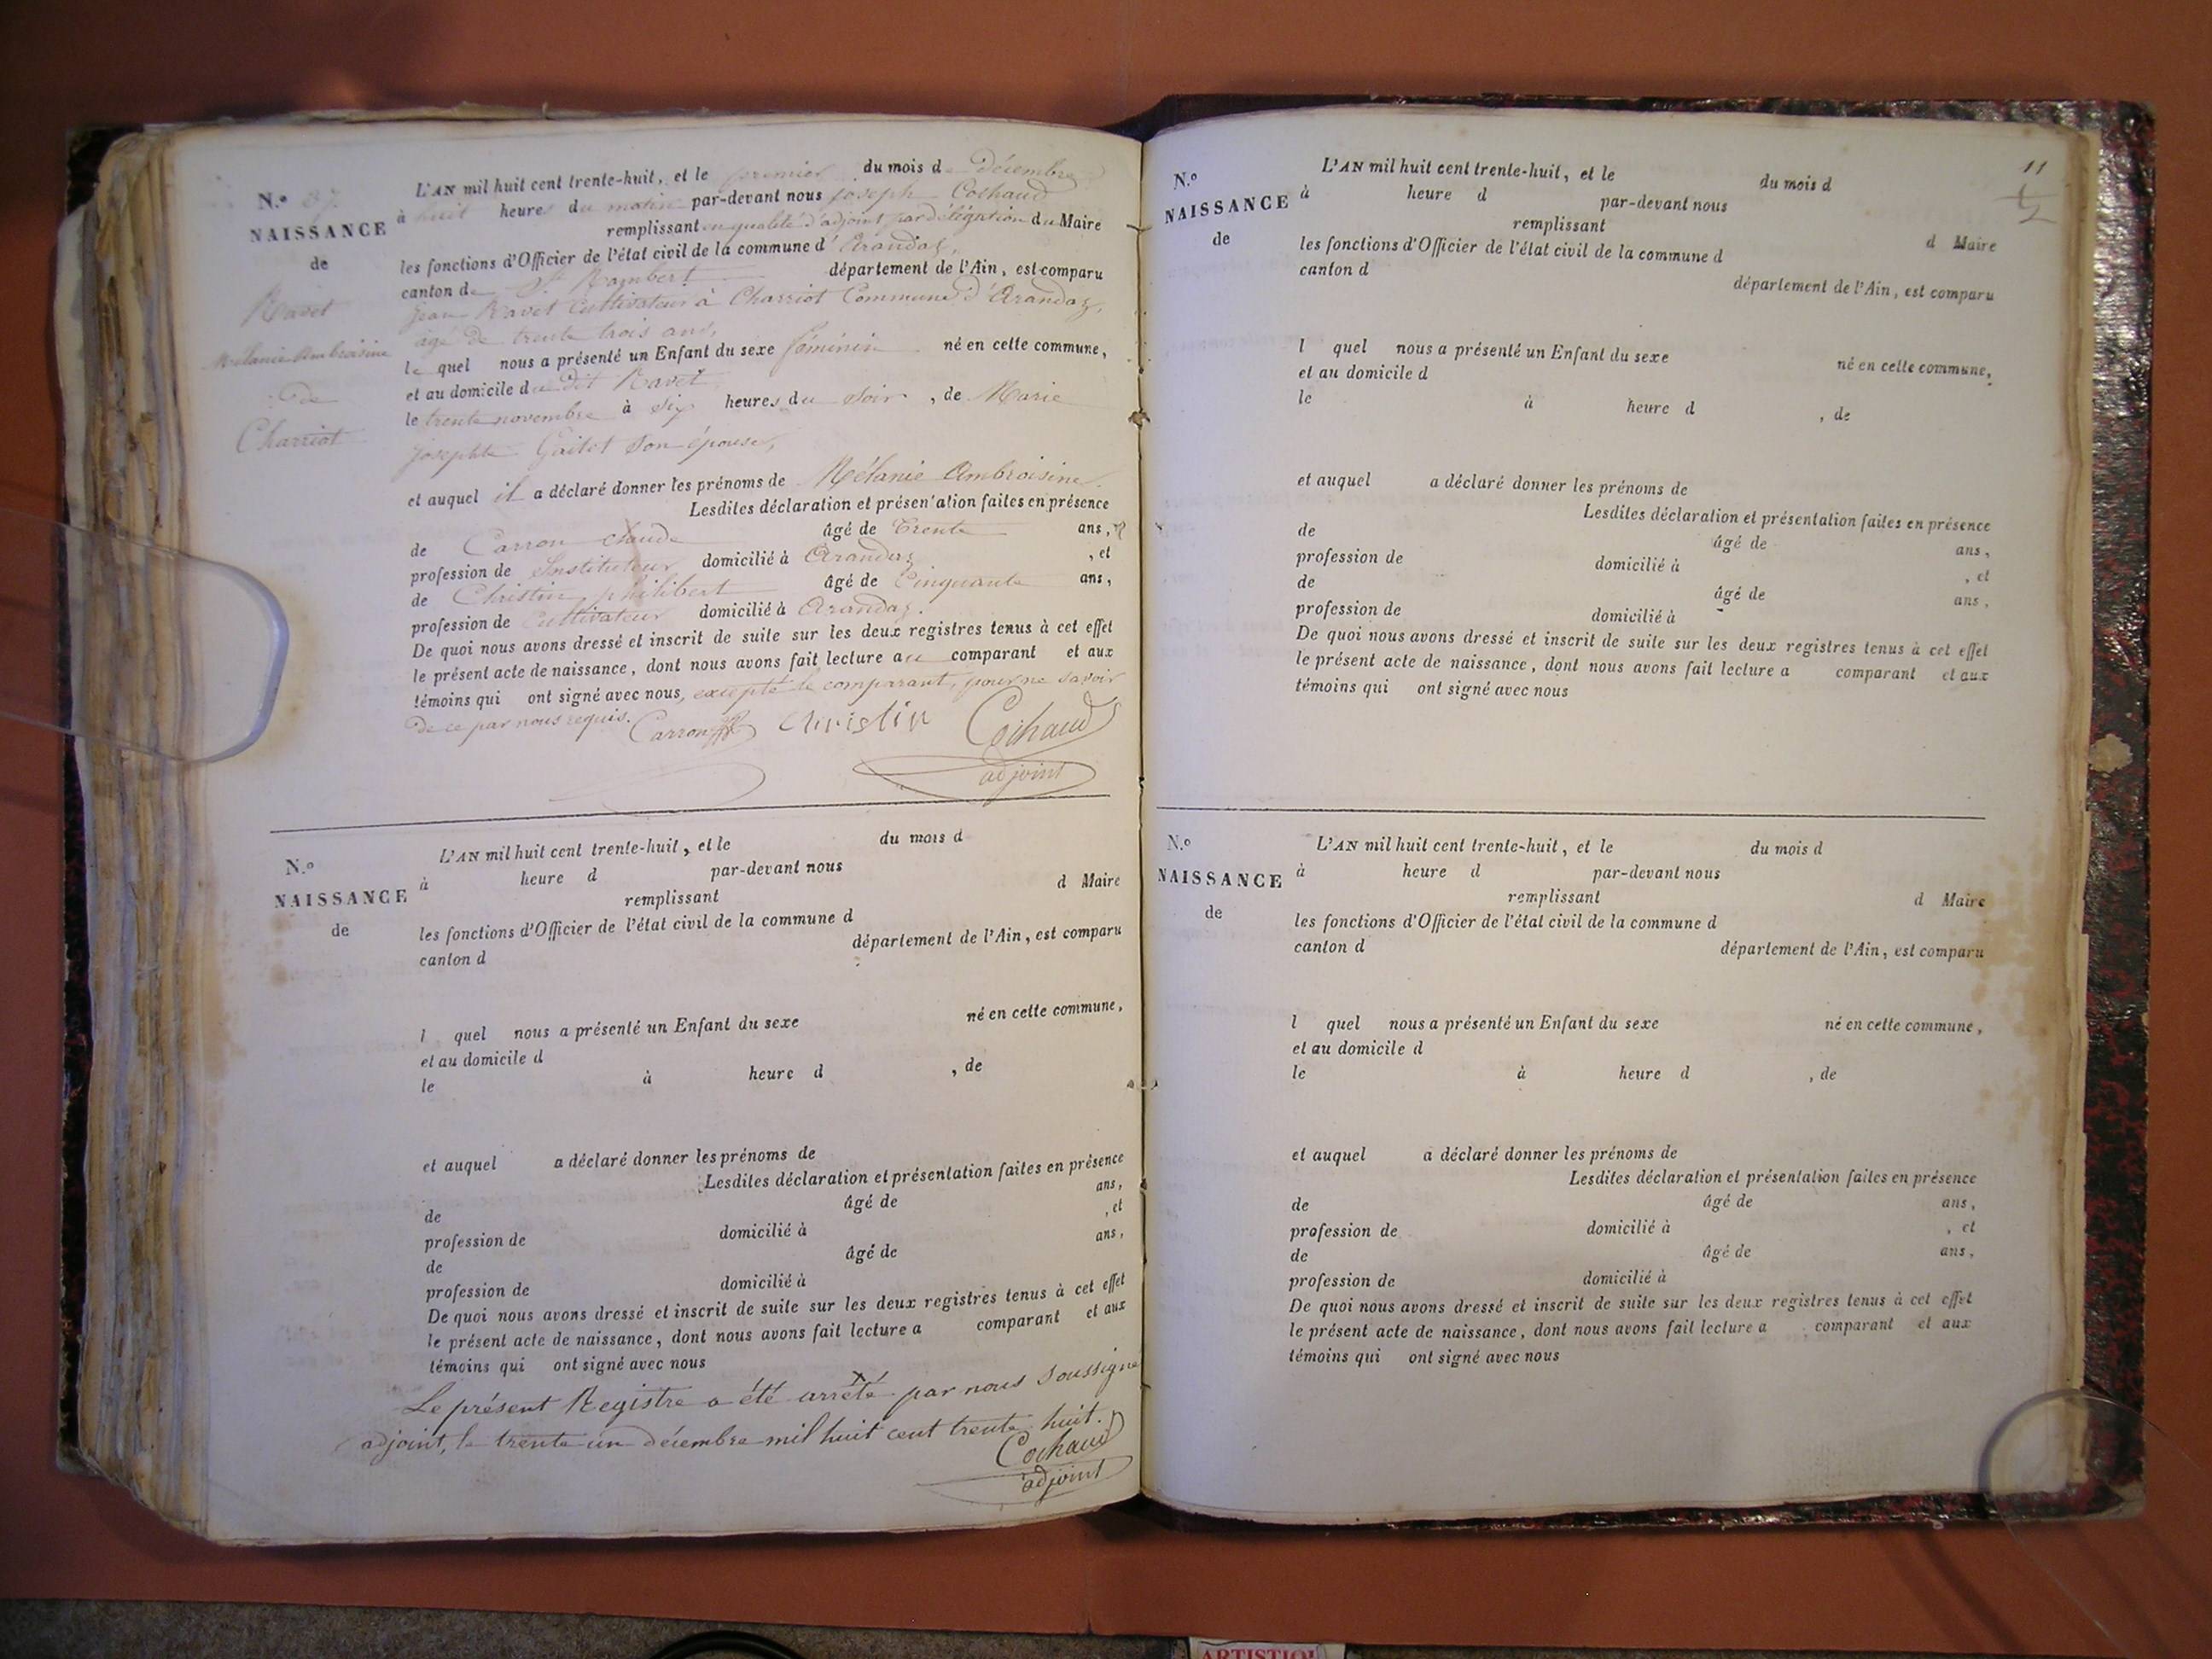 N.º 37
NAISSANCE
de
Ravet
Mélanie Ambroisine
de
Charriot
L'AN mil huit cent trente-huit, et le premier du mois de Décembre
à huit heures du matin par-devant nous joseph Cochaud
remplissant en qualité d'adjoint par délégation du Maire
les fonctions d'Officier de l'état civil de la commune d'Arandaz,
canton de St Rambert département de l'Ain, est comparu
jean Ravet Cultivateur à Charriot Commune d'Arandaz,
agé de trente trois ans,
le quel nous a présenté un Enfant du sexe féminin né en cette commune,
et au domicile du dit Ravet
le trente novembre à Six heures du Soir, de Marie
josephte Guitet Son épouse,
et auquel il a déclaré donner les prénoms de Mélanie Ambroisine.
Lesdites déclaration et présentation faites en présence
de Carron claude âgé de Trente ans,
profession de Instituteur domicilié à Arandaz, et
de Christin philibert âgé de Cinquante ans,
profession de Cultivateur domicilié à Arandaz.
De quoi nous avons dressé et inscrit de suite sur les deux registres tenus à cet effet
le présent acte de naissance, dont nous avons fait lecture au comparant et aux
témoins qui ont signé avec nous, excepté le comparant, pour ne savoir
de ce par nous requis.
Carron Christin Cochaud
adjoint
N.º
NAISSANCE
de
L'AN mil huit cent trente-huit, et le du mois d
à heure d par-devant nous
remplissant d Maire
les fonctions d'Officier de l'état civil de la commune d
canton d département de l'Ain, est comparu
l quel nous a présenté un Enfant du sexe né en cette commune,
et au domicile d
le à heure d , de
et auquel a déclaré donner les prénoms de
Lesdites déclaration et présentation faites en présence
de âgé de ans,
profession de domicilié à , et
de âgé de ans,
profession de domicilié à
De quoi nous avons dressé et inscrit de suite sur les deux registres tenus à cet effet
le présent acte de naissance, dont nous avons fait lecture a comparant et aux
témoins qui ont signé avec nous
Le présent Registre a été arrêté par nous Soussigné
adjoint, le trente un décembre mil huit cent trente huit.
Cochaud
adjoint
11
N.º
NAISSANCE
de
L'AN mil huit cent trente-huit, et le du mois d
à heure d par-devant nous
remplissant d Maire
les fonctions d'Officier de l'état civil de la commune d
canton d département de l'Ain, est comparu
l quel nous a présenté un Enfant du sexe né en cette commune,
et au domicile d
le à heure d , de
et auquel a déclaré donner les prénoms de
Lesdites déclaration et présentation faites en présence
de âgé de ans,
profession de domicilié à , et
de âgé de ans,
profession de domicilié à
De quoi nous avons dressé et inscrit de suite sur les deux registres tenus à cet effet
le présent acte de naissance, dont nous avons fait lecture a comparant et aux
témoins qui ont signé avec nous
N.º
NAISSANCE
de
L'AN mil huit cent trente-huit, et le du mois d
à heure d par-devant nous
remplissant d Maire
les fonctions d'Officier de l'état civil de la commune d
canton d département de l'Ain, est comparu
l quel nous a présenté un Enfant du sexe né en cette commune,
et au domicile d
le à heure d , de
et auquel a déclaré donner les prénoms de
Lesdites déclaration et présentation faites en présence
de âgé de ans,
profession de domicilié à , et
de âgé de ans,
profession de domicilié à
De quoi nous avons dressé et inscrit de suite sur les deux registres tenus à cet effet
le présent acte de naissance, dont nous avons fait lecture a comparant et aux
témoins qui ont signé avec nous